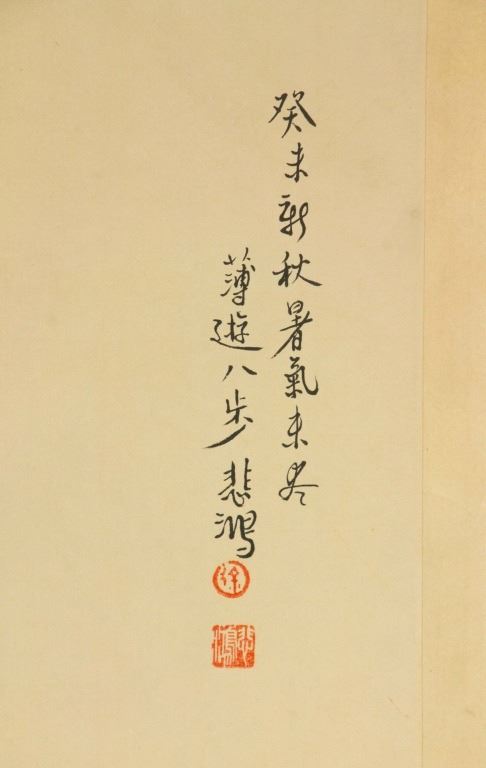 癸未新秋暑氣未尽
薄遊八步悲鴻
徐
悲鴻